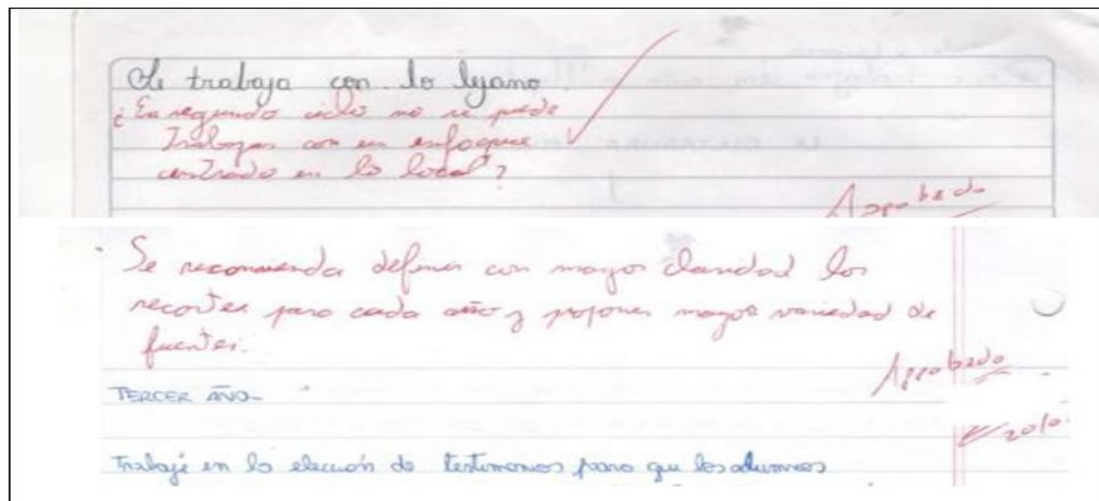 Se trabaja con lo lejano
¿En segundo ciclo no se puede
Trabajar con un enfoque
centrado en lo local?
Aprobado
Se recomienda definir con mayor claridad los
recortes para cada año y proponer mayor variedad de
fuentes.
Aprobado
TERCER AÑO
2010
Trabajé en la elección de testimonios para que los alumnos